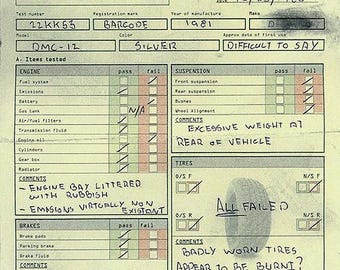 Test number
Registration mark
Year of manufacture
Make
22KK53
BARCODE
1981
Model
Approx date of first use
DMC-12
SILVER
DIFFICULT TO SAY
A. Items tested
ENGINE pass fail
Fuel system
Emissions
Battery
Gas tank N/A
Air/fuel filters
Transmission fluid
Engine oil
Cylinders
Gear box
Radiator
COMMENTS
- ENGINE BAY LITTERED
WITH RUBBISH
- EMISSIONS VIRTUALLY NON
EXISTANT
BRAKES pass fail
Brake pads
Parking brake
Brake fluid
SUSPENSION pass fail
Front suspension
Rear suspension
Bushes
Wheel Alignment
COMMENTS
EXCESSIVE WEIGHT AT
REAR OF VEHICLE
TIRES
O/S F
N/S F
ALL FAILED
O/S R
N/S R
COMMENTS
BADLY WORN TIRES
APPEAR TO BE BURNT?